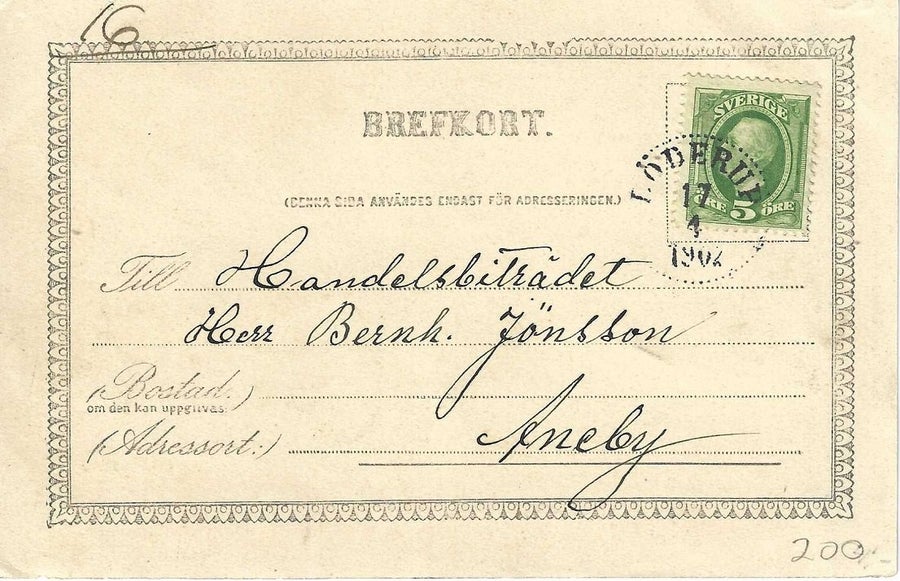 16
BREFKORT.
SVERIGE
ÖRE 5 ÖRE
LÖDERUP
17
4
1902
(DENNA SIDA ANVÄNDES ENDAST FÖR ADRESSERINGEN.)
Till Handelsbiträdet
Herr Bernh. Jönsson
(Bostad.)
om den kan uppgifvas:
Aneby
(Adressort:)
200:-